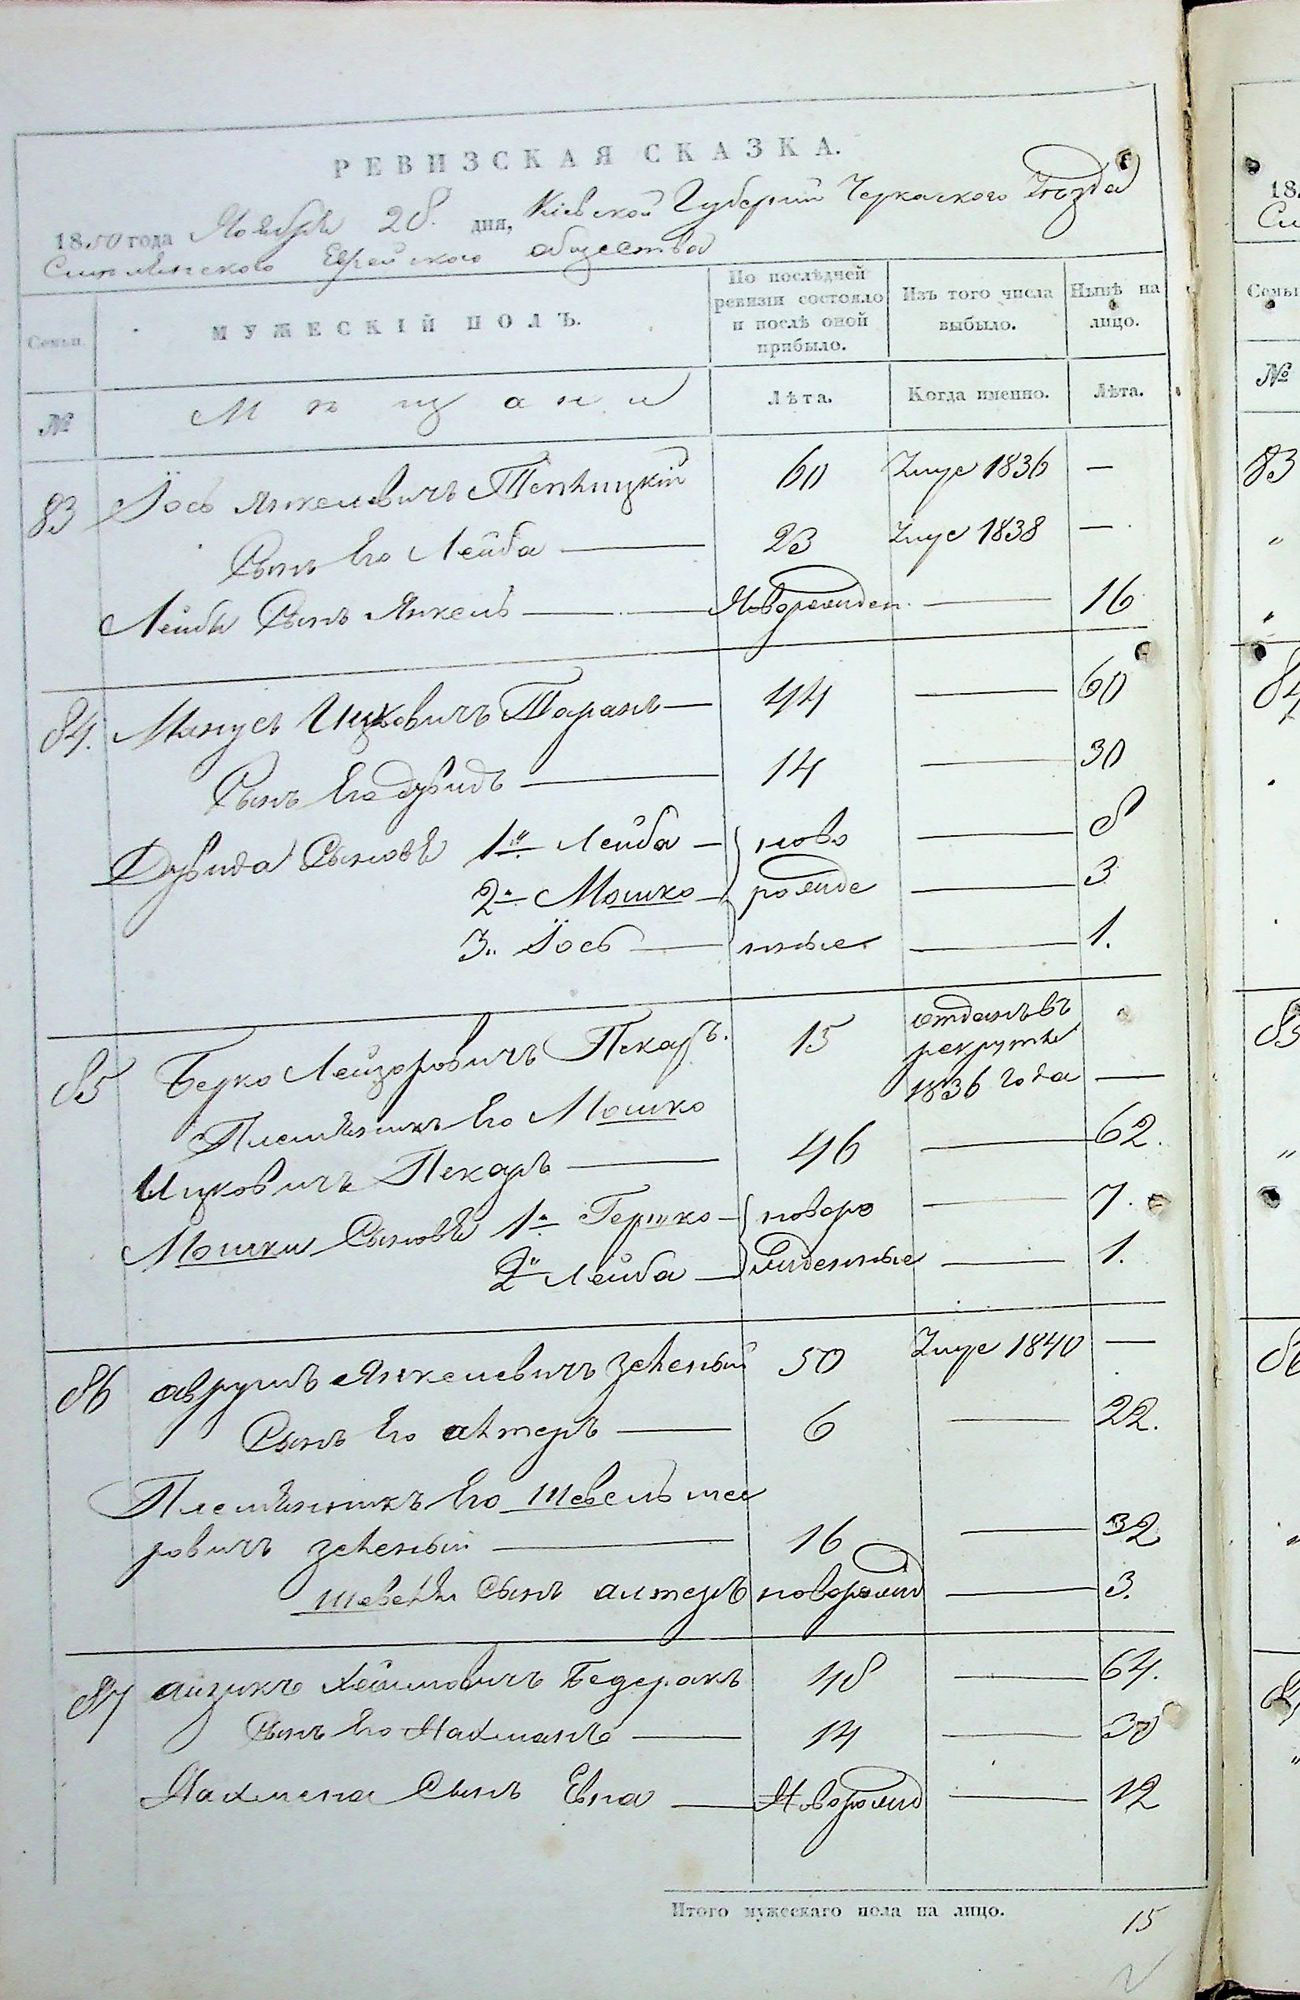 РЕВИЗСКАЯ СКАЗКА.
1850 года Ноября 28. дня, Кіевской Губерніи Черкаского Уѣзда
Смилянского Еврейского общества
Семьи. МУЖЕСКІЙ ПОЛЪ. По послѣдней ревизіи состояло и послѣ оной прибыло. Изъ того числа выбыло. Нынѣ на лицо.
№ Мѣщани Лѣта. Когда именно. Лѣта.
83 Іось Янкелевичъ 60 Умре 1836 —
Сынъ Его Лейба — 23 Умре 1838 —
Лейбы Сынъ Янкель — Новорожден. — 16
84. Манусъ Ицковичъ Таранъ — 44 — 60
Сынъ Его Дувидъ — 14 — 30
Дувида Сыновѣ 1й Лейба — ново — 8
2й Мошко — рожде — 3
3й Іось — нные — 1.
85 Берко Лейзоровичъ Пекарь. 15 отданъ въ рекруты 1836 года —
Племѣнникъ Его Мошко
Ицковичъ Пекарь — 46 — 62.
Мошки Сыновѣ 1й Гершко — новоро — 7.
2й Лейба — жденные — 1.
86 Аврумъ Янкелевичъ Зеленый 50 Умре 1840 —
Сынъ Его Алтеръ — 6 — 22.
Племѣнникъ Его Шевель Мее
ровичъ Зеленый — 16 — 32
Шевеля Сынъ Алтеръ новорожд — 3.
87 Айзикъ Хаимовичъ 48 — 64.
Сынъ Его Нахманъ — 14 — 30
Нахмана Сынъ Евна — Новорожд — 12
Итого мужескаго пола на лицо. 15
18
№
83
84
85
86